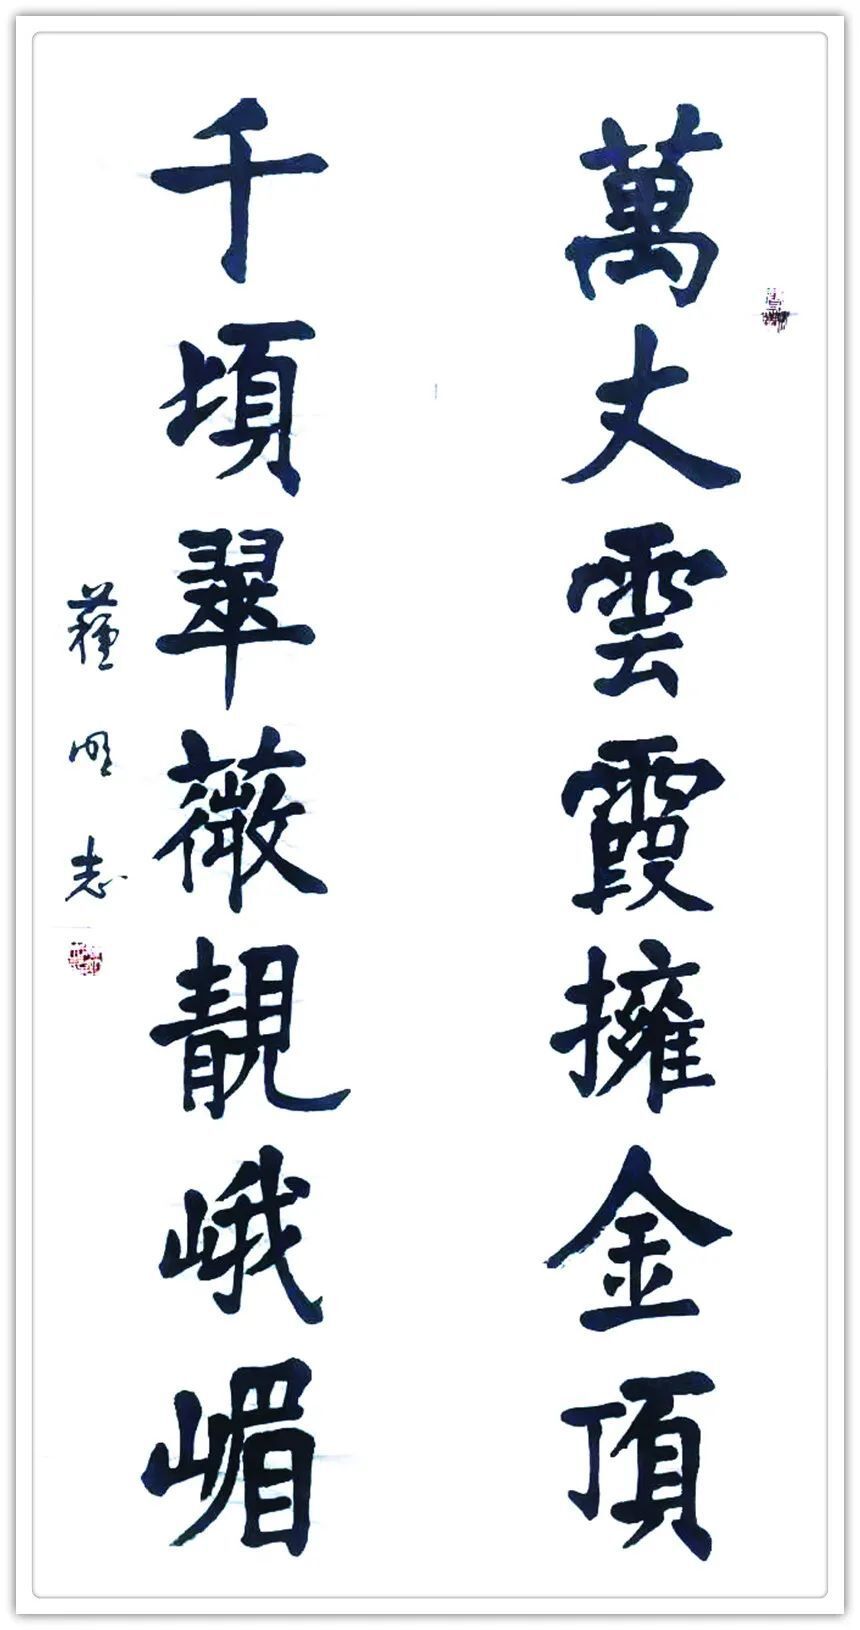 萬丈雲霞擁金頂
千頃翠薇靚峨嵋
蘓明志